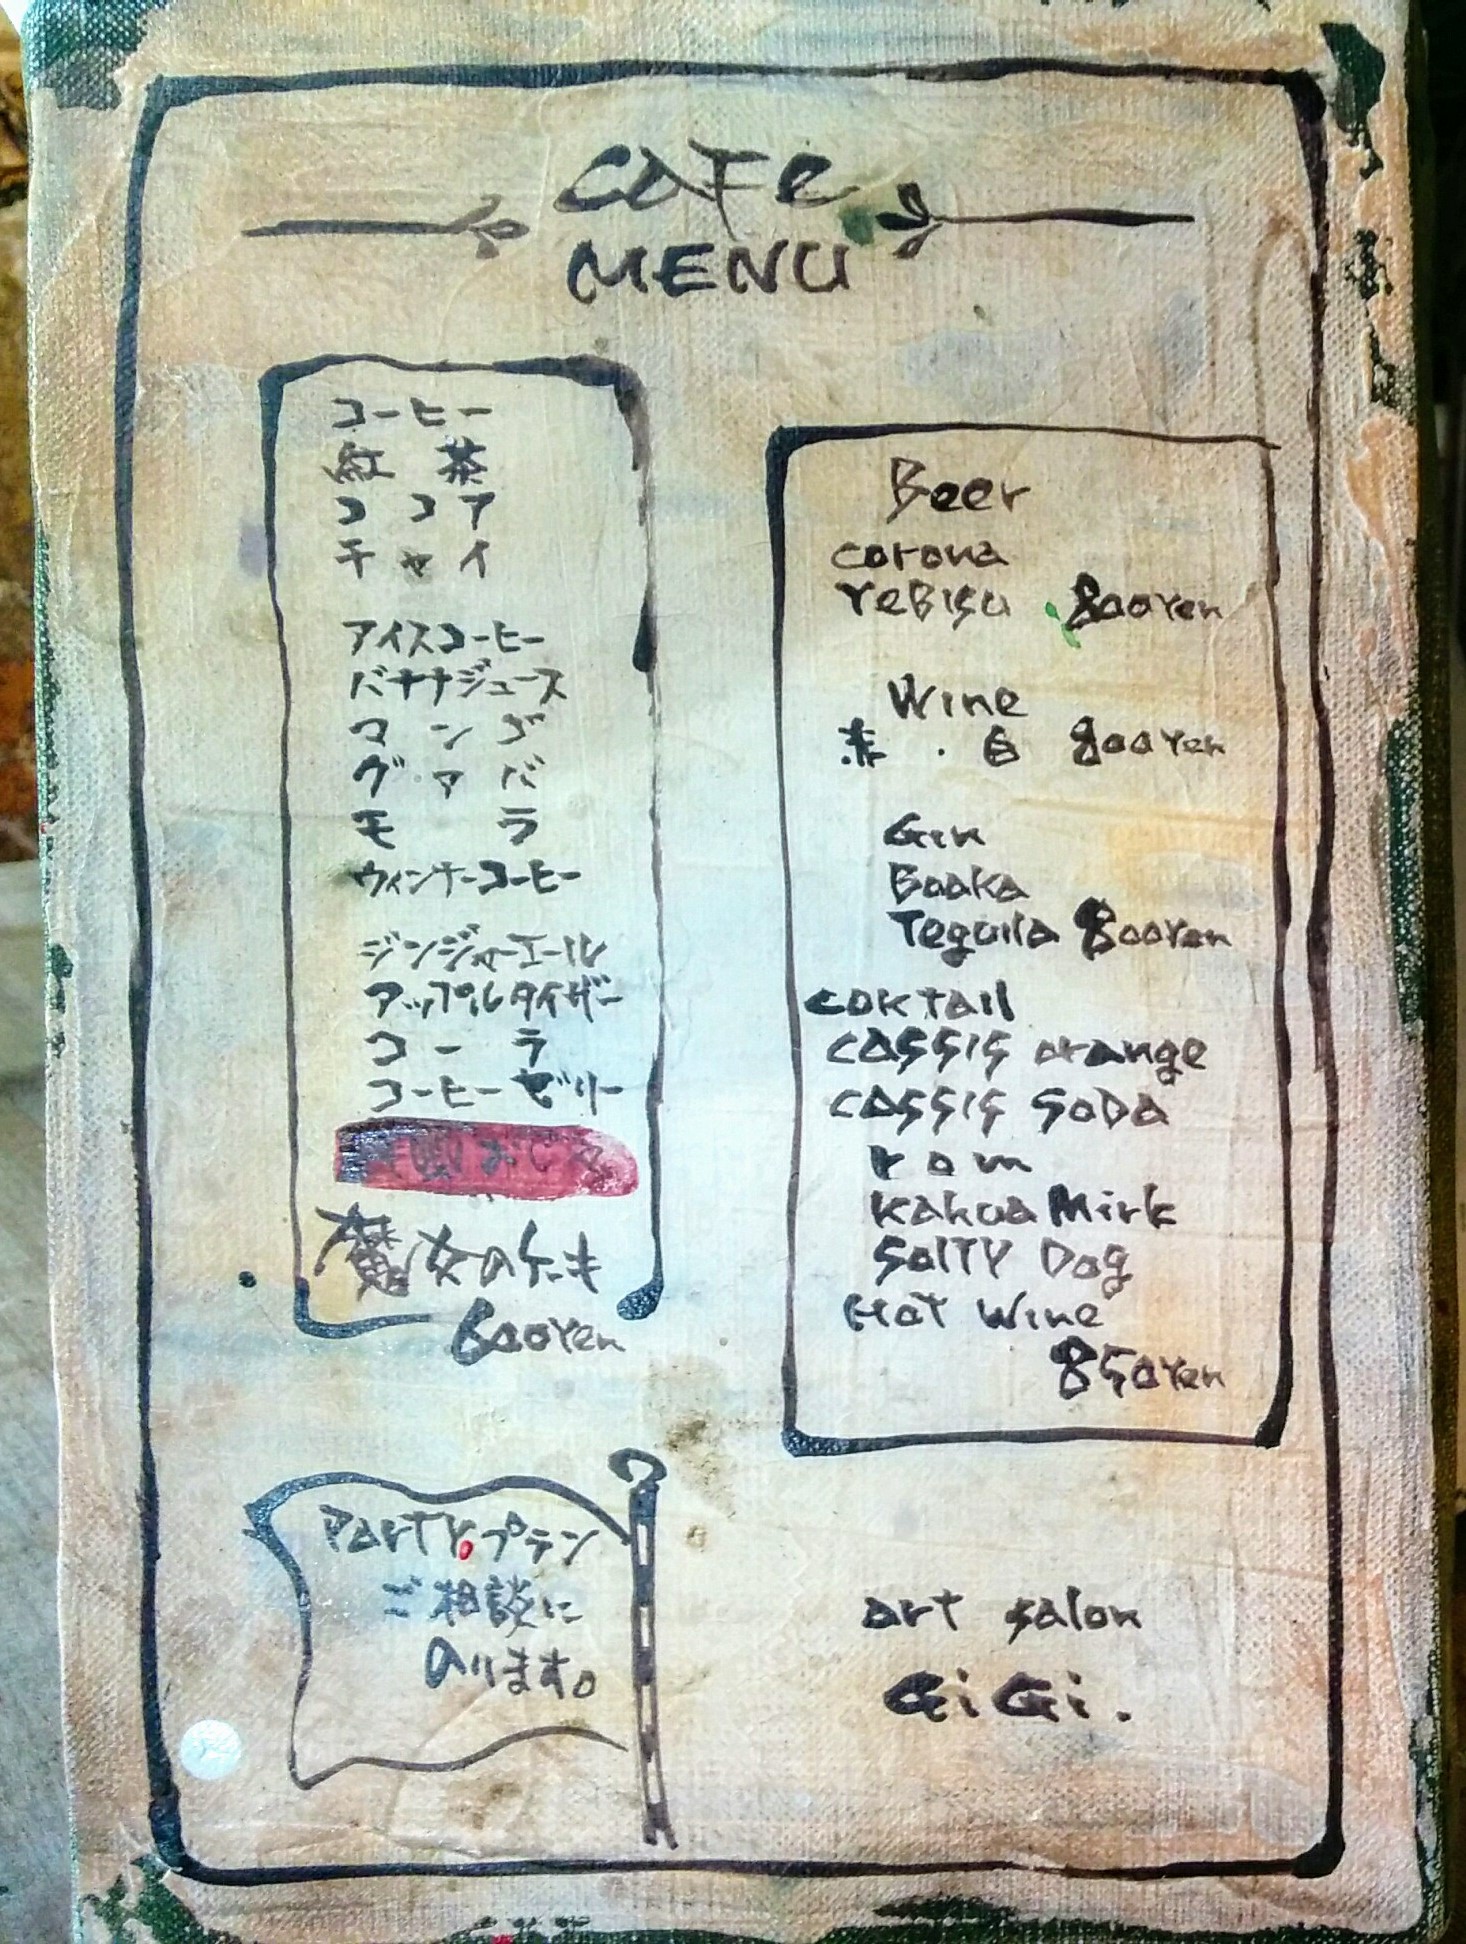 CAFE
MENU
コーヒー
紅茶
ココア
チャイ
アイスコーヒー
バナナジュース
マンゴ
グァバ
モラ
ウィンナーコーヒー
ジンジャーエール
アップルタイザー
コーラ
コーヒーゼリー
魔女のケーキ
600Yen
Beer
corona
YeBISU 800Yen
Wine
赤・白 800Yen
Gin
Booka
Tequila 800Yen
coktail
cassis orange
cassis soDa
rom
kahua Mirk
SalTY Dog
HoT Wine
850Yen
ParTY プラン
ご相談に
のります。
art salon
GiGi.